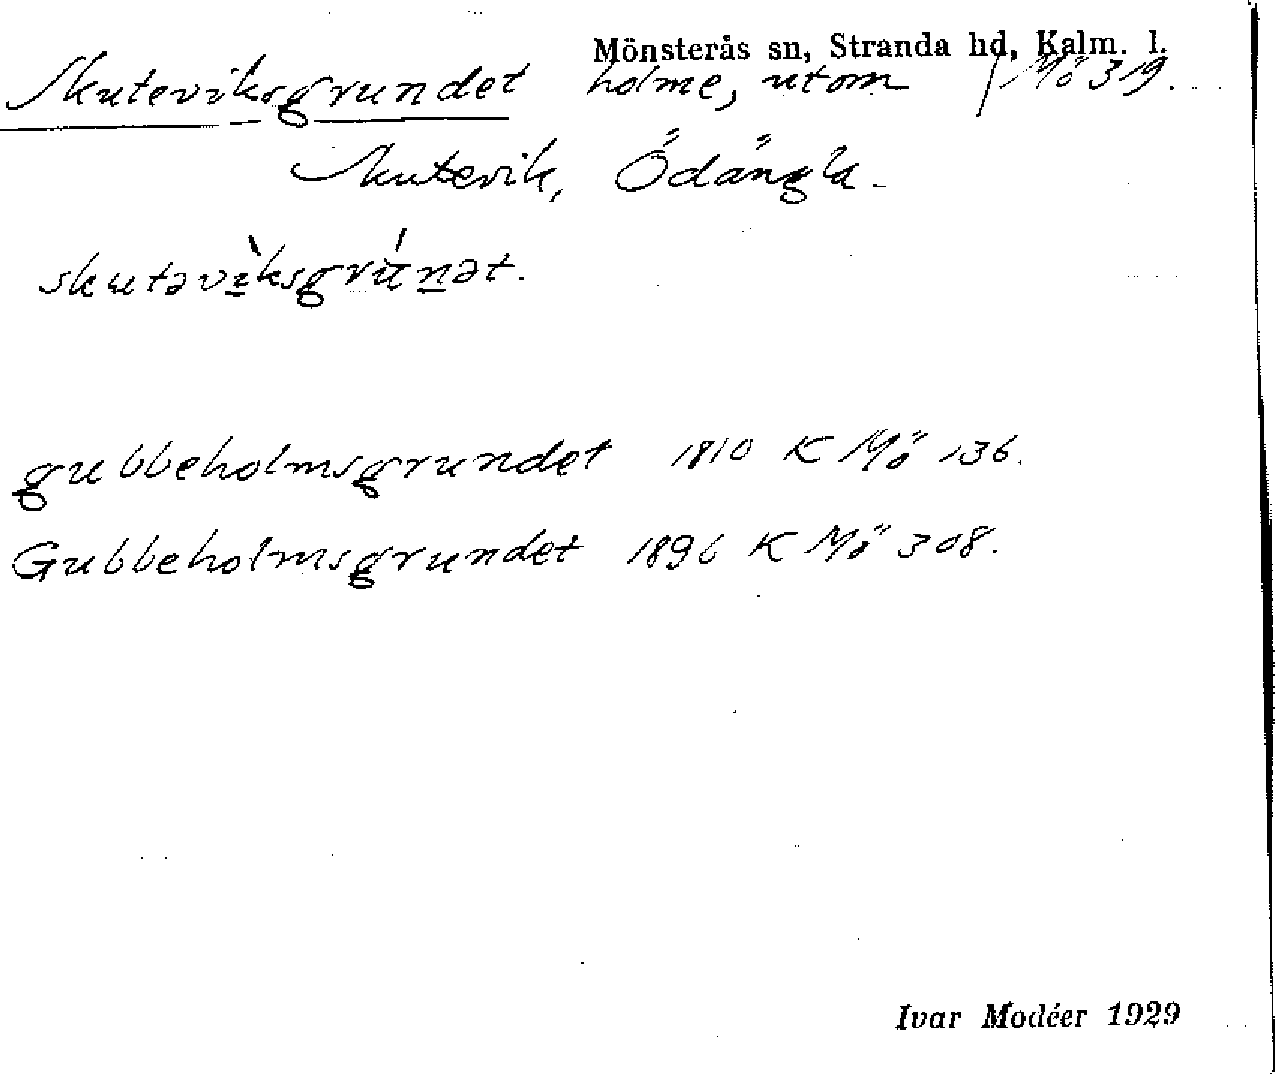 Mönsterås sn, Stranda hd, Kalm. l.
Skuteviksgrundet holme, utom / Mö 319.
Skutevik, Ödängla.
skutəvìksgrúnət.
gubbeholmsgrundet 1810 K Mö 136.
Gubbeholmsgrundet 1896 K Mö 308.
Ivar Modéer 1929